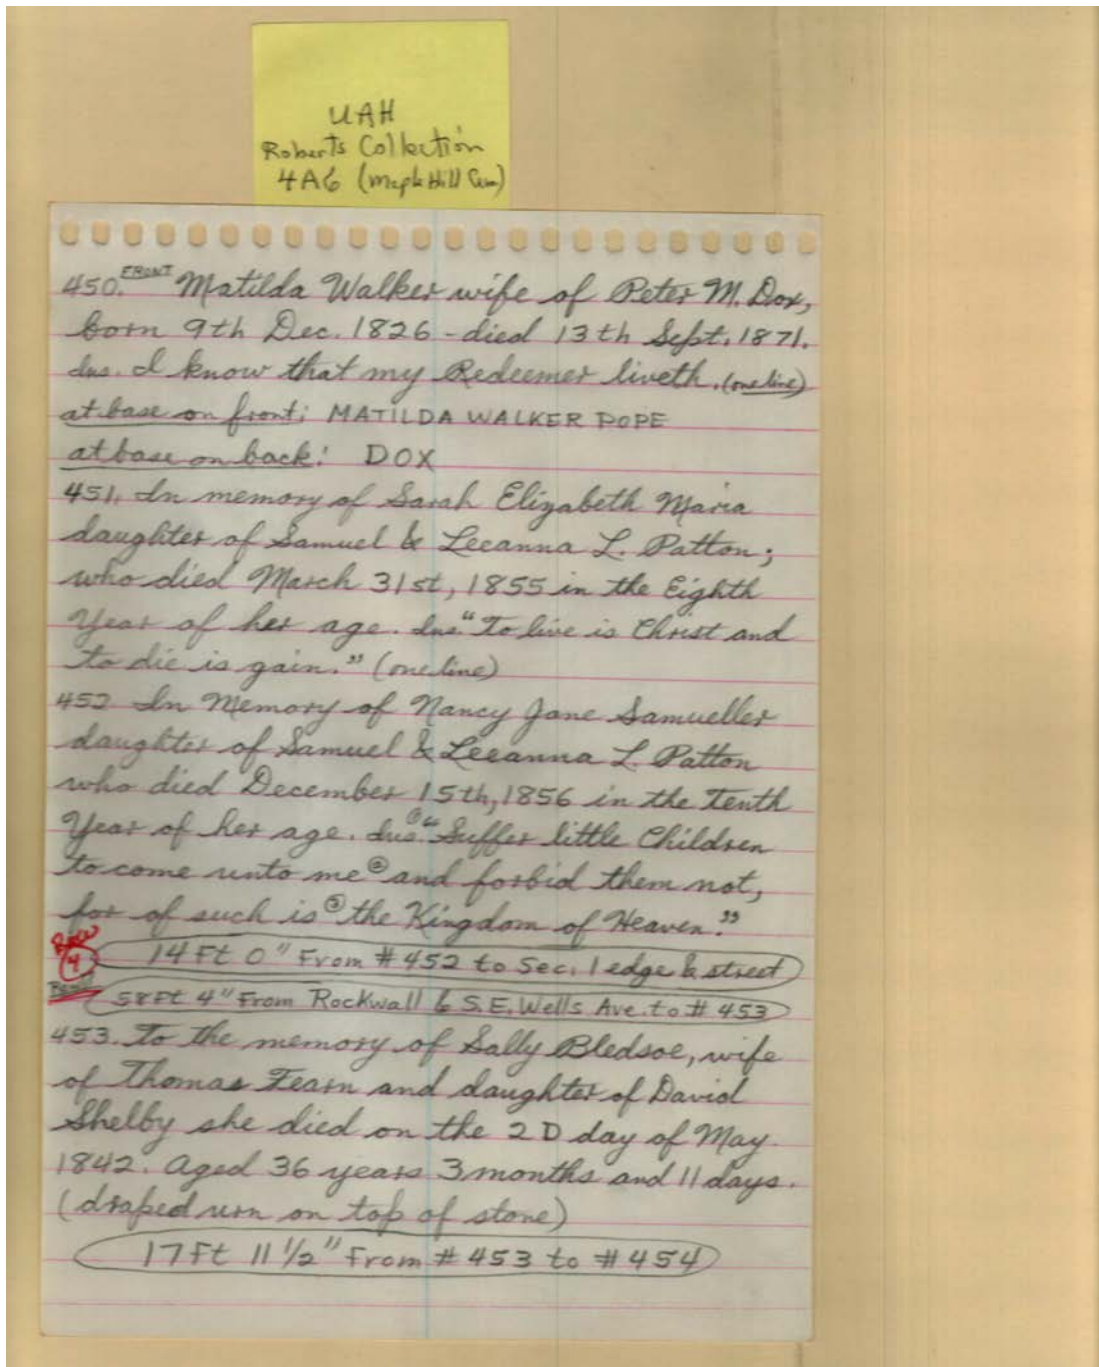 UAH
Roberts Collection
4A6 (Maple Hill Cem)
450. FRONT Matilda Walker wife of Peter M. Dox,
born 9th Dec. 1826 - died 13th Sept. 1871.
Ins. I know that my Redeemer liveth. (one line)
at base on front: MATILDA WALKER POPE
at base on back: DOX
451. In memory of Sarah Elizabeth Maria
daughter of Samuel & Leeanna L. Patton;
who died March 31st, 1855 in the Eighth
Year of her age. Ins. "To live is Christ and
to die is gain." (one line)
452 In Memory of Nancy Jane Samueller
daughter of Samuel & Leeanna L. Patton
who died December 15th, 1856 in the Tenth
Year of her age. Ins. ① "Suffer little Children
to come unto me ② and forbid them not,
for of such is ③ the Kingdom of Heaven."
14 Ft 0" From #452 to Sec. 1 edge & street
4
58 Ft 4" From Rockwall & S.E. Wells Ave. to #453
453. To the memory of Sally Bledsoe, wife
of Thomas Fearn and daughter of David
Shelby she died on the 2D day of May
1842. Aged 36 years 3 months and 11 days.
(draped urn on top of stone)
17 Ft 11 1/2" From #453 to #454